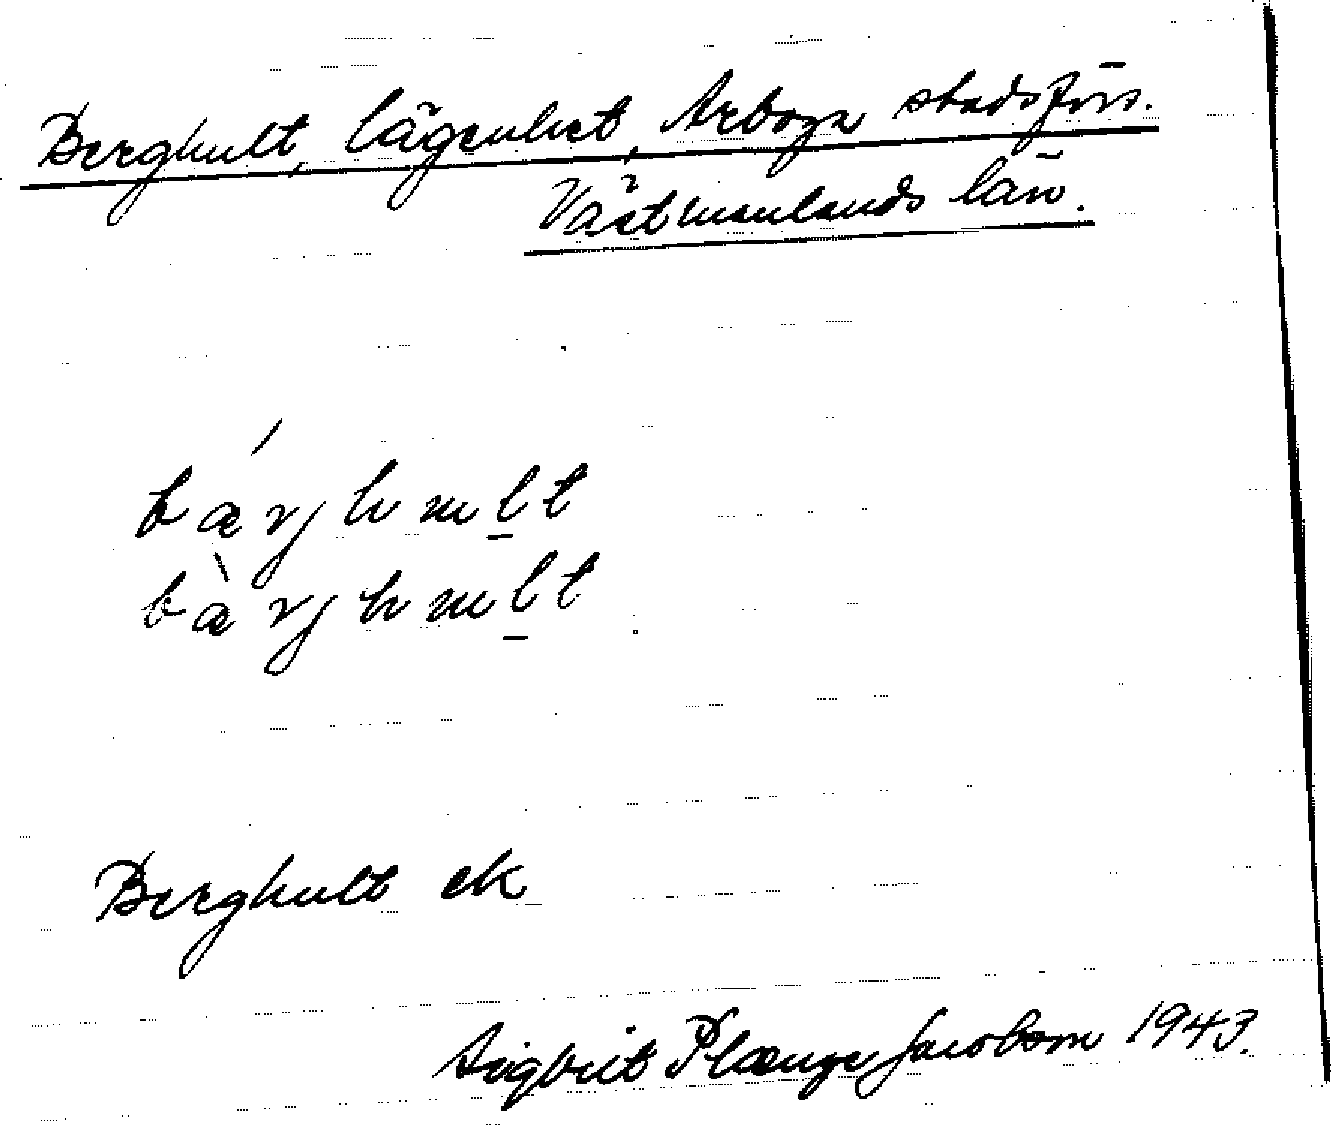 Berghult, lägenhet, Arboga stadsförs.
Västmanlands län.
bæ´rjhult
bæ`rjhult
Berghult ek
Sigbrit Plænge Jacobson 1943.